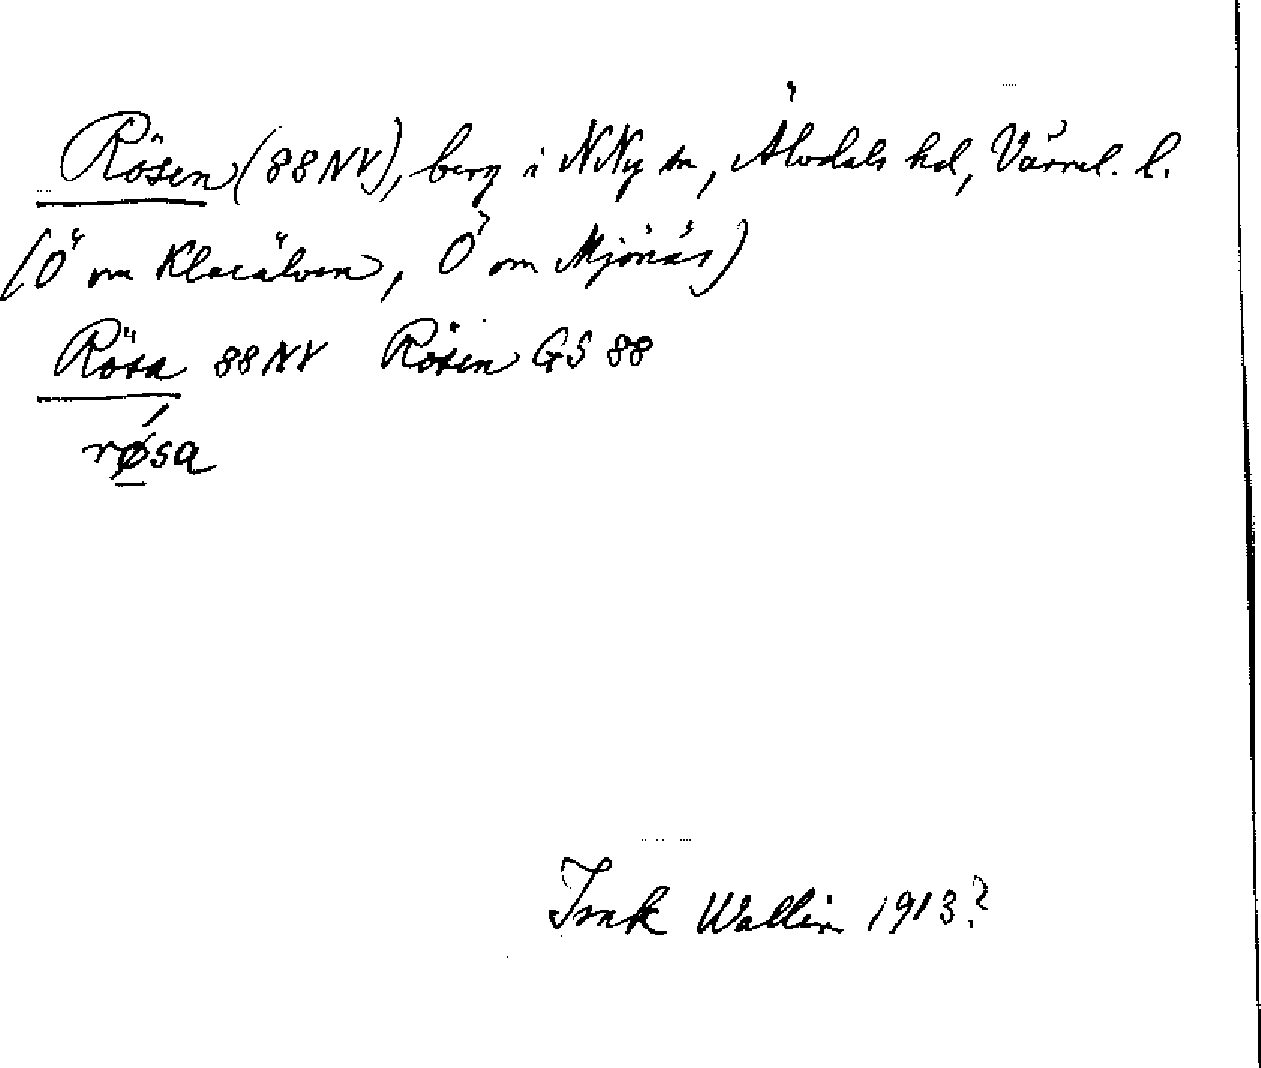 Rösen (88NV), berg i NNy sn, Älvdals hd, Värml. l.
(Ö om Klarälven, Ö om Mjönäs)
Rösa 88NV Rösen GS 88
rǿsa
Isak Wallin 1913?